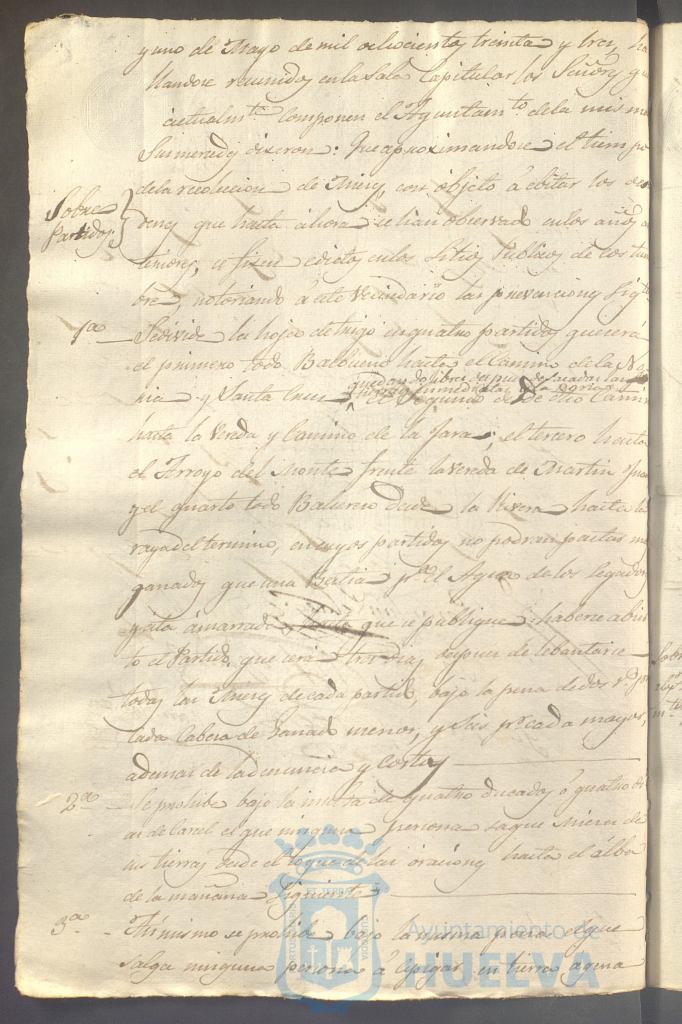 y uno de Mayo de mil ochocientos treinta y tres, ha
llandose reunidos en la Sala Capitular los Señores que
actualmte. componen el Ayuntamto. de la misma
Sus mercedes dixeron: Que aproximandose el tiempo
de la recoleccion de Mieses, con objeto á evitar los de
Sobre
Partidos
denes que hasta ahora se han observado en los años an
teriores, se fixen edictos en los Sitios Publicos de costum
bre, notoriando á este Vecindario las prevenciones Sigtes.
1ª Se divide la hoja de trigo en quatro partidos que será
el primero todo Baldueno hasta el Camino de la No
quedando libres despues de sacadas las
ria y Santa Cruz el Segundo desde otro Camino
hasta la Vereda y Camino de la Jara; el tercero hasta
el Arroyo del Monte frente la vereda de Martin
y el quarto todo desde la Rivera hasta la
raya del termino, en cuyos partidos no podran pastar mas
ganados que una Bestia pa. el Agua de los Segadores
y esta amarrada hasta que se publique haberse abier
to el Partido, que será tres dias despues de lebantarse
todas las Mieses de cada partido, bajo la pena de dos rs. por
cada Cabeza de Ganado menor, y Seis pr. cada mayor,
ademas de la denuncia y Costas
2ª Se prohibe bajo la multa de quatro ducados ó quatro di
as de Carcel el que ninguna persona saque Mieses de
sus tierras desde el toque de las oraciones hasta el álba
de la mañana Siguiente
3ª Asimismo se prohibe bajo la misma pena el que
Salga ninguna persona á Espigar en tierra agena
Ayuntamiento de
HUELVA